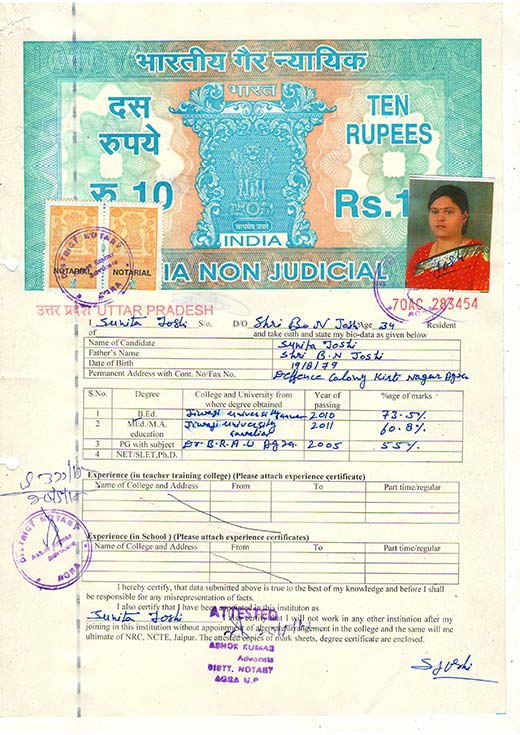 भारतीय गैर न्यायिक
भारत
दस
रुपये
रु.10
TEN
RUPEES
Rs.1
सत्यमेव जयते
INDIA
NOTARIAL NOTARIAL
DISTRICT NOTARY
AGRA
IA NON JUDICIAL
70AC 283454
उत्तर प्रदेश UTTAR PRADESH
I Sunita Joshi S/o. D/O Shri B.N Joshi Age 34 Resident
of and take oath and state my bio-data as given below
Name of Candidate Sunita Joshi
Father's Name Shri B.N Joshi
Date of Birth 19/8/79
Permanent Address with Cont. No/Fax No. Defence Colony Kirti Nagar Agra
S.No. Degree College and University from where degree obtained Year of passing %age of marks
1 B.Ed. Jiwaji University 2010 73.5%
2 MEd./M.A. education Jiwaji University Gwalior 2011 60.8%
3 PG with subject Dr. B.R.A.U Agra. 2005 55%
4 NET/SLET,Ph.D.
Experience (in teacher training college) (Please attach experience certificate)
Name of College and Address From To Part time/regular
DISTRICT NOTARY
Advocate
AGRA
Experience (in School ) (Please attach experience certificates)
Name of College and Address From To Part time/regular
I hereby certify, that data submitted above is true to the best of my knowledge and before I shall
be responsible for any misrepresentation of facts.
I also certify that I have been appointed in this instituton as
Sunita Joshi that I will not work in any other institution after my
joining in this institution without appointment of alternat arrangement in the college and the same will me
ultimate of NRC, NCTE, Jaipur. The attested copies of mark sheets, degree certificate are enclosed.
ATTESTED
ASHOK KUMAR
Advocate
DISTT. NOTARY
AGRA U.P
SJoshi